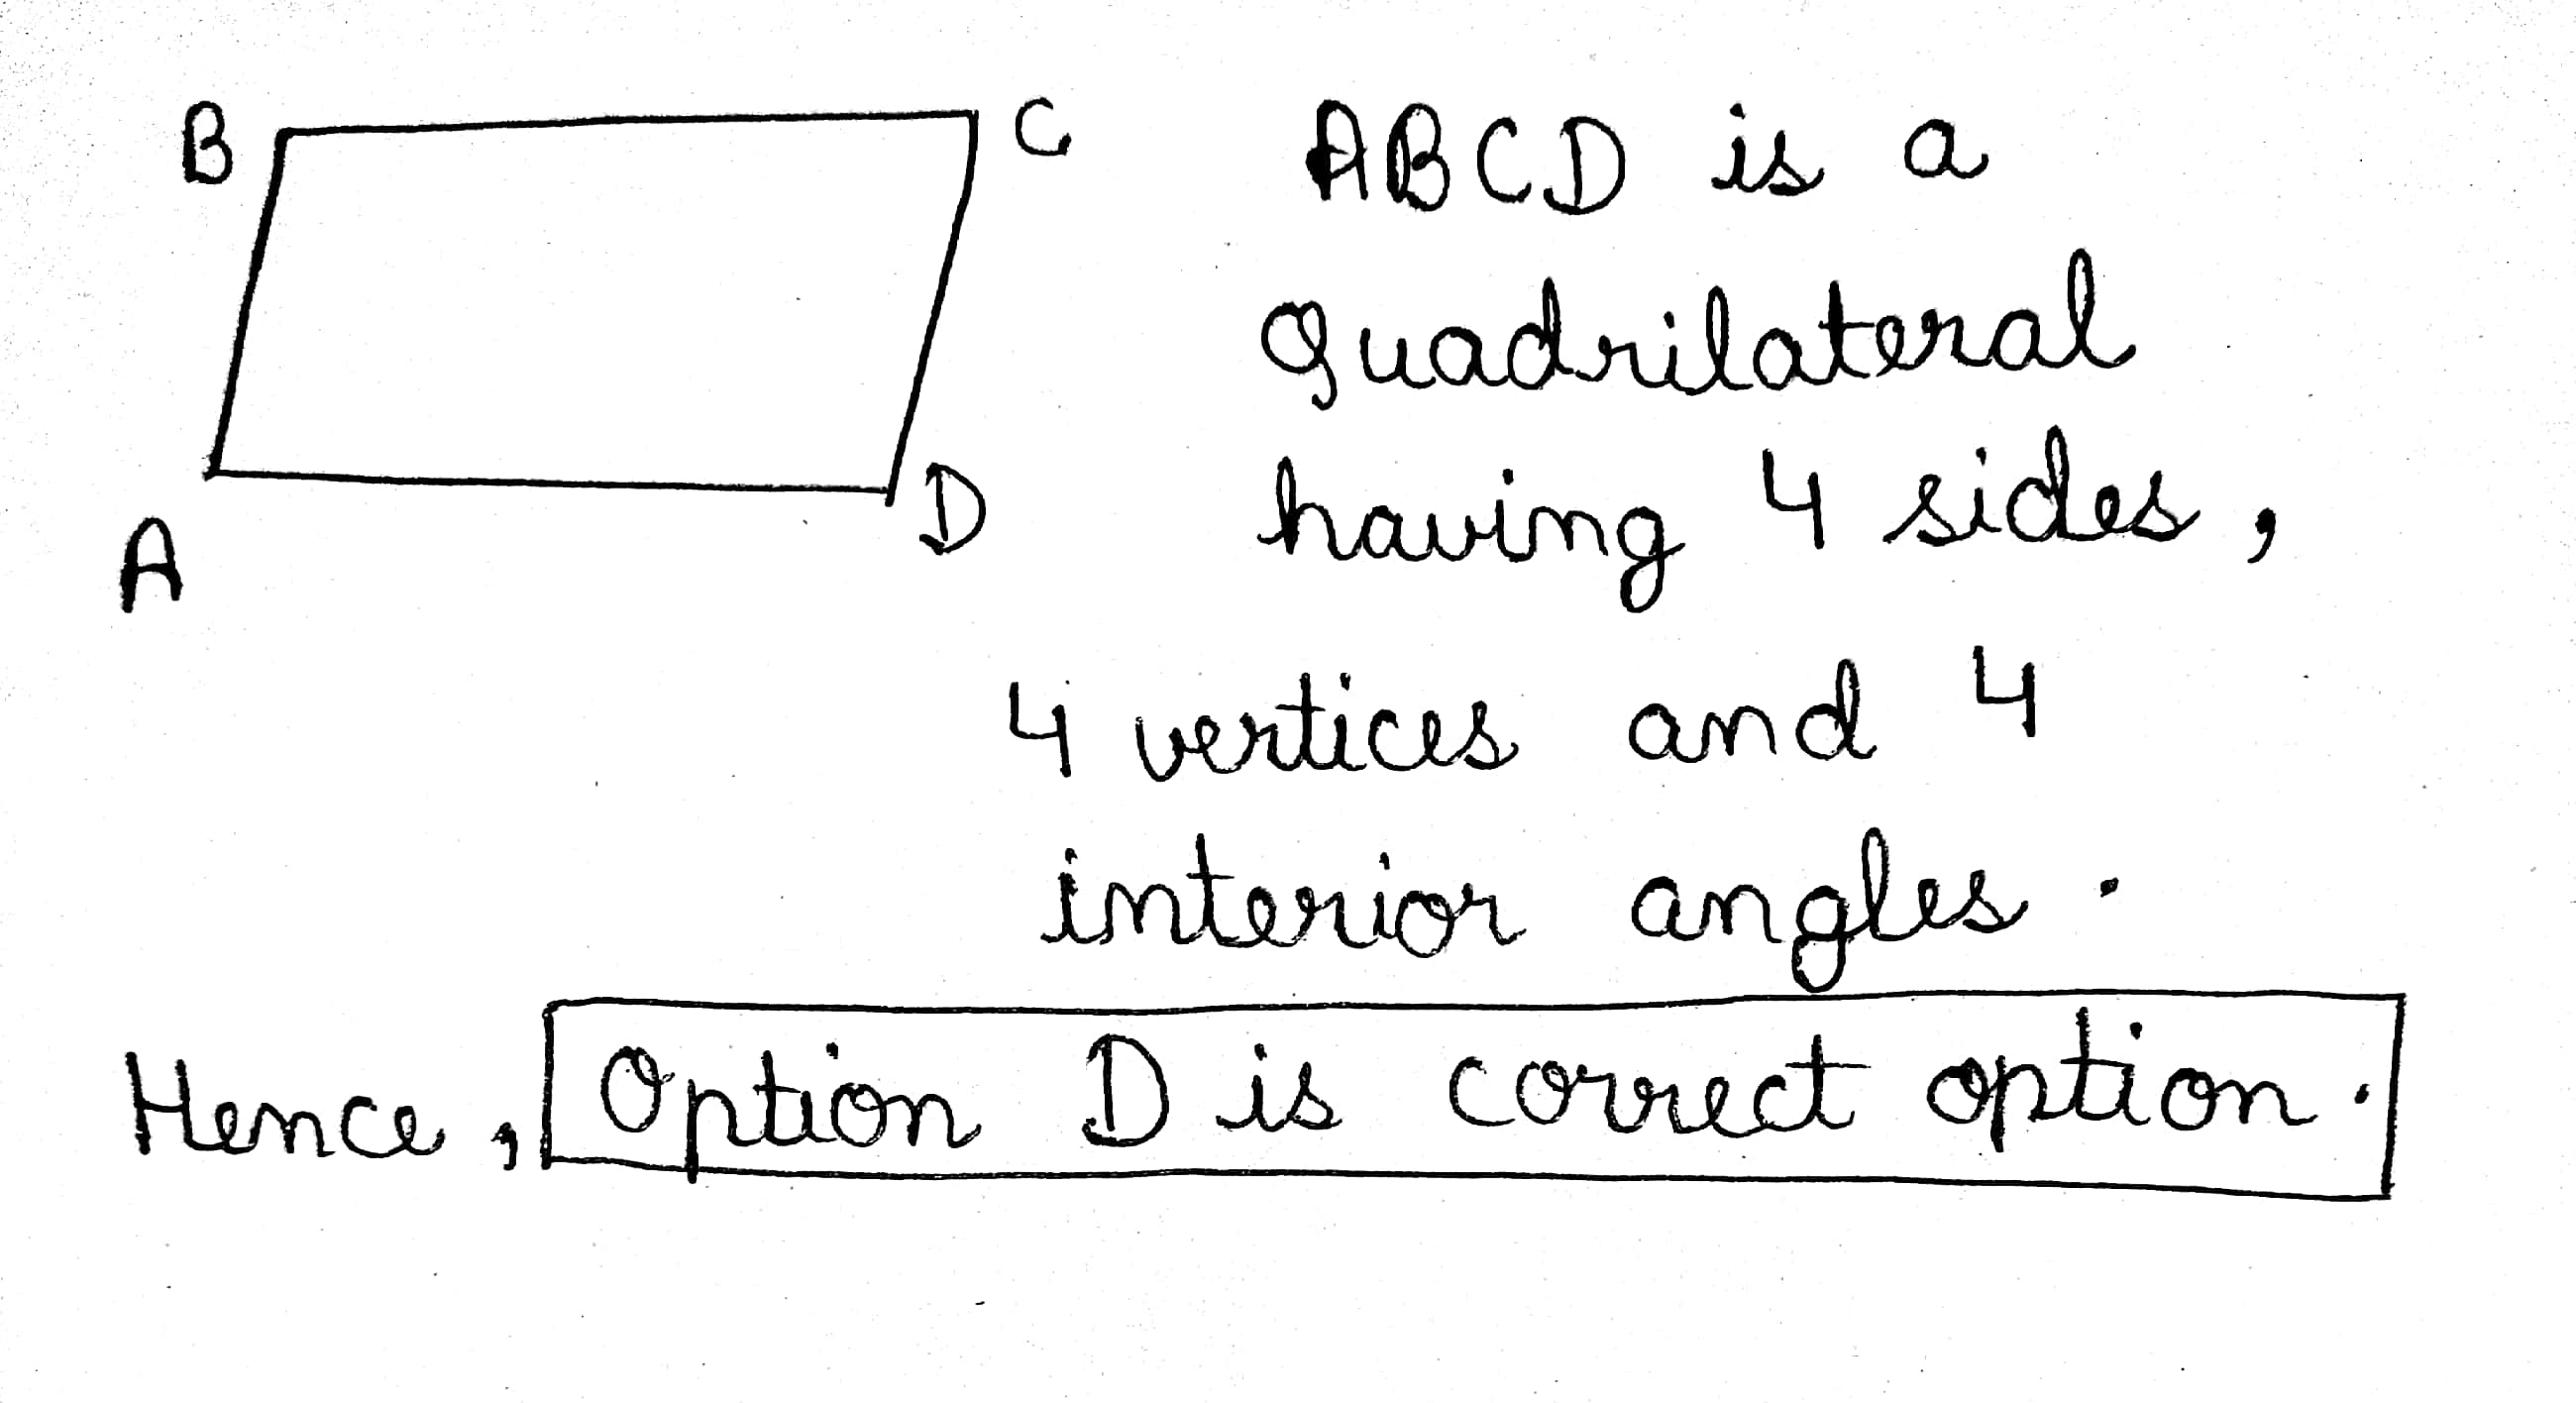 B
C
A
D
ABCD is a
quadrilateral
having 4 sides,
4 vertices and 4
interior angles.
Hence, Option D is correct option.